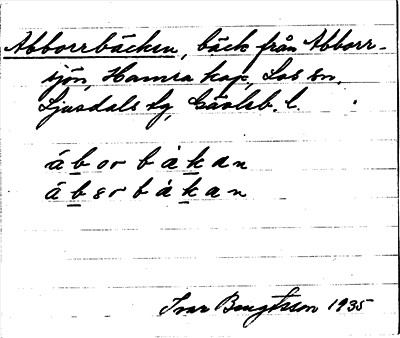 Abborrbäcken, bäck från Abborr-
sjön, Hamra kap, Los sn,
Ljusdals tg, Gävleb. l.
á b o r b à k a n
á b ɛ r b à k a n
Ivar Bengtsson 1935